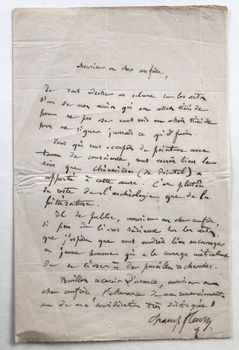 Monsieur et cher confrère,
Je vous adresse un volume sur les arts
d'un de mes amis qui est assez timide
pour ne pas se vous voir est assez timide
pour ne signer jamais ce qu'il fait.
Vous qui vous occupez de peinture avec
tant de conscience, vous verrez bien le
soin que Chennevières (de Pointel) a
apporté à cette œuvre. C'est plutôt
du reste de l'archéologie que de la
littérature.
Il se publie, monsieur et cher confrère
si peu de livres sérieux sur les arts
que j'espère que vous voudrez bien encourager
un jeune homme qui a le courage
de se livrer à de pareilles recherches.
Veuillez recevoir d'avance, monsieur et
cher confrère, l'assurance de mes remerciements
et de ma considération très distinguée
Champfleury